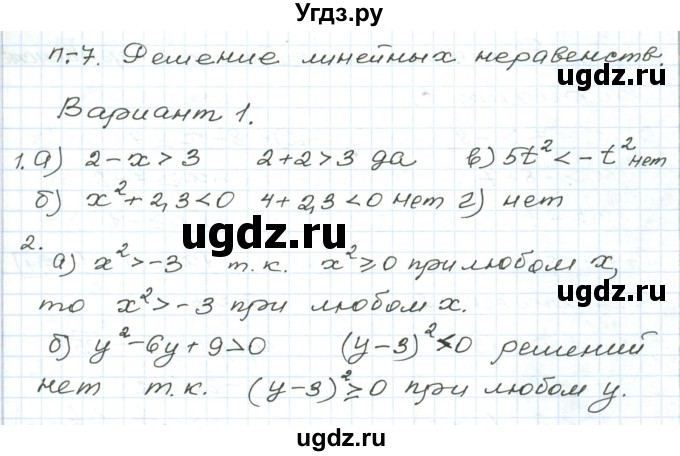 Угдз.ру
П.-7. Решение линейных неравенств.
ugdz.ru
Вариант 1.
ugdz.ru
1. а) 2-x>3 2+2>3 да в) 5t²<-t² нет
б) x²+2,3<0 4+2,3<0 нет г) нет
ugdz.ru
2.
а) x²>-3 т.к. x²≥0 при любом x,
то x²>-3 при любом x.
ugdz.ru
б) y²-6y+9>0 (y-3)²<0 решений
нет т.к. (y-3)²≥0 при любом y.
ugdz.ru
ugdz.ru